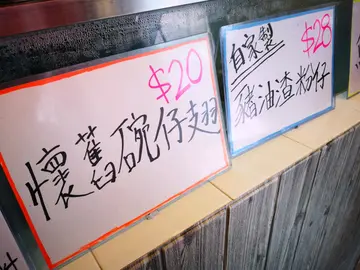 $20
懷舊碗仔翅
$28
自家製
豬油渣粉仔